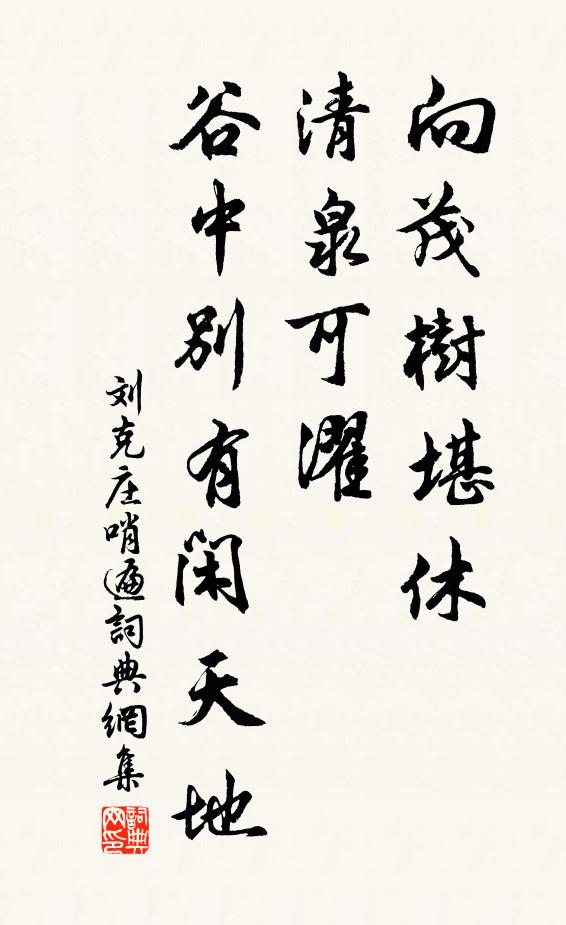 向茂樹堪休
清泉可濯
谷中别有閑天地
刘克庄哨遍詞典網集
詞典
网印